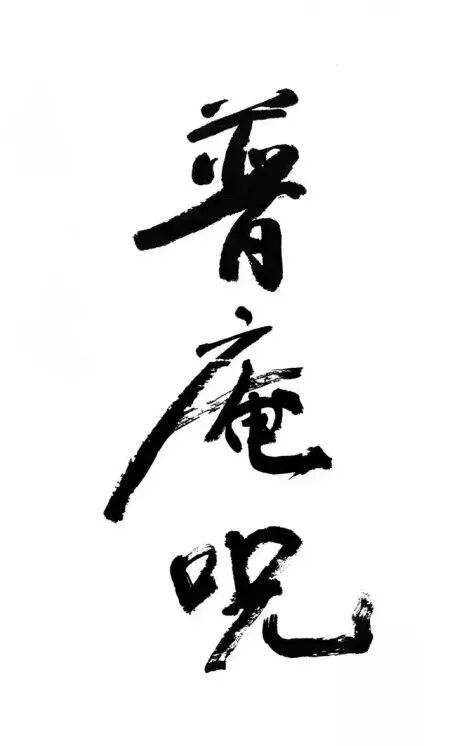 普庵咒